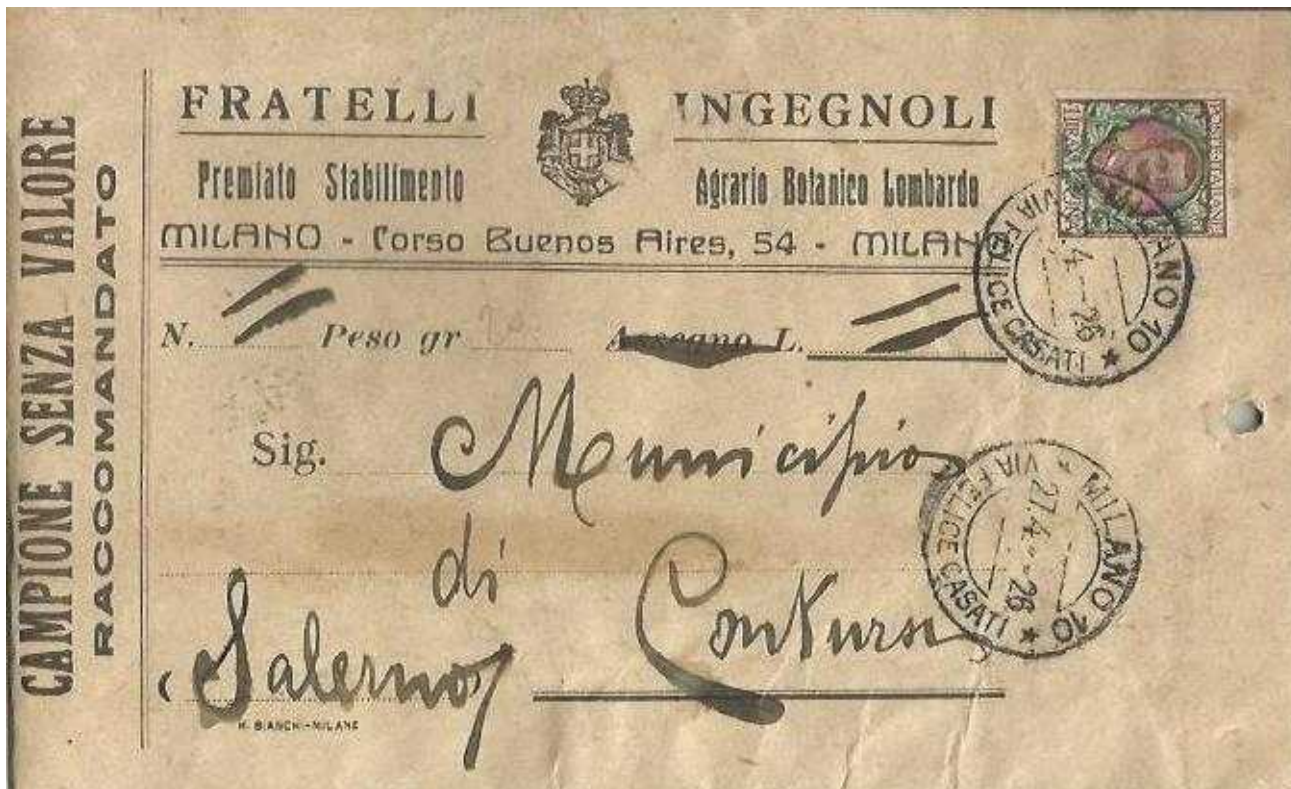 CAMPIONE SENZA VALORE
RACCOMANDATO
FRATELLI INGEGNOLI
Premiato Stabilimento Agrario Botanico Lombardo
MILANO - Corso Buenos Aires, 54 - MILANO
N. Peso gr Assegno L.
Sig. Municipio
di Contursi
(Salerno)
MILANO 10
VIA FELICE CASATI
4 - 26
MILANO 10
VIA FELICE CASATI
27.4 - 26